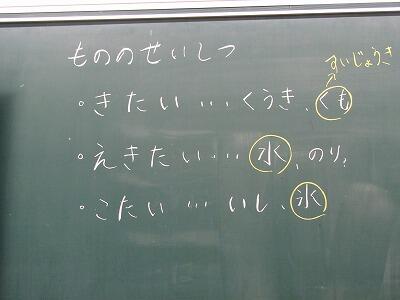 もののせいしつ
すいじょうき
・きたい…くうき、くも
・えきたい…水、のり?
・こたい…いし、氷